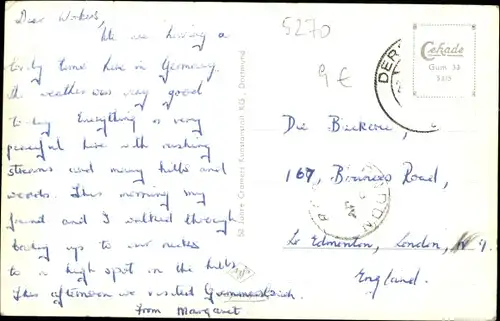 Dear Workers,
We are having a
lovely time here in Germany.
The weather was very good
today. Everything is very
peaceful here with rushing
streams and many hills and
woods. This morning my
friend and I walked through
up to our necks
to a high spot in the hills.
This afternoon we visited
from Margaret
50 Jahre Cramers Kunstanstalt KG · Dortmund
5270
9 €
DER
Cekade
Gum 53
5315
Die Bickerei,
167, Road,
Lr Edmonton, London, N.9.
England.